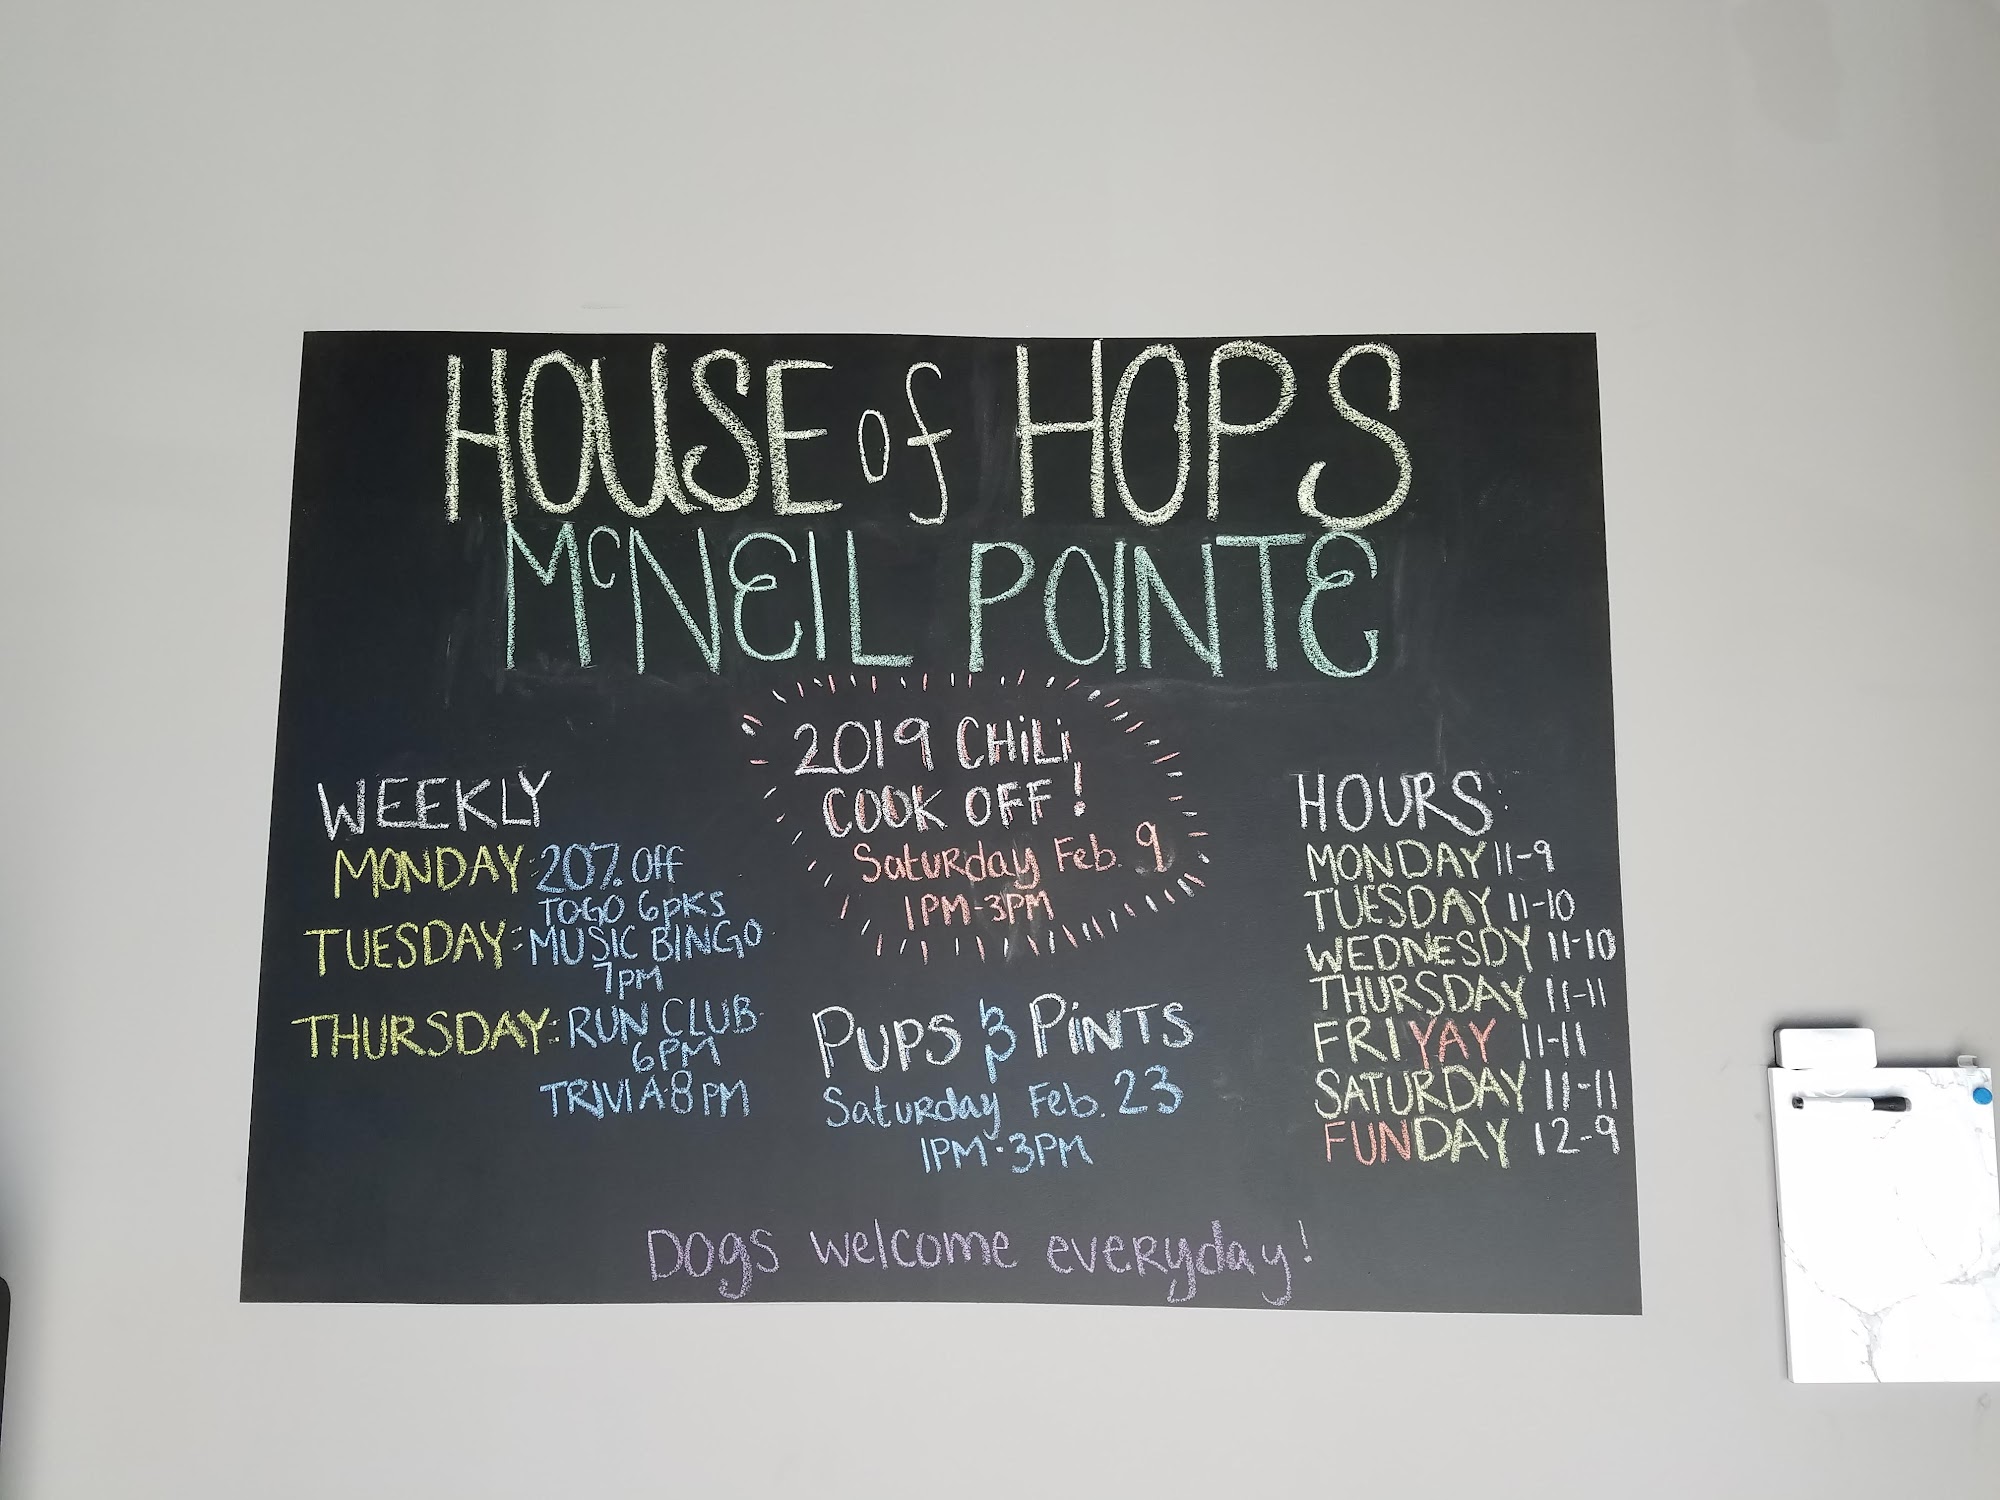 HOUSE of HOPS
McNEIL POINTE
2019 CHiLi
COOK OFF!
Saturday Feb. 9
1PM-3PM
WEEKLY
MONDAY: 20% Off
TOGO 6pks
TUESDAY: MUSIC BINGO
7pm
THURSDAY: RUN CLUB
6PM
TRIVIA·8PM
PUPS & PiNTS
Saturday Feb. 23
1PM-3PM
HOURS:
MONDAY 11-9
TUESDAY 11-10
WEDNESDY 11-10
THURSDAY 11-11
FRIYAY 11-11
SATURDAY 11-11
FUNDAY 12-9
Dogs welcome everyday!